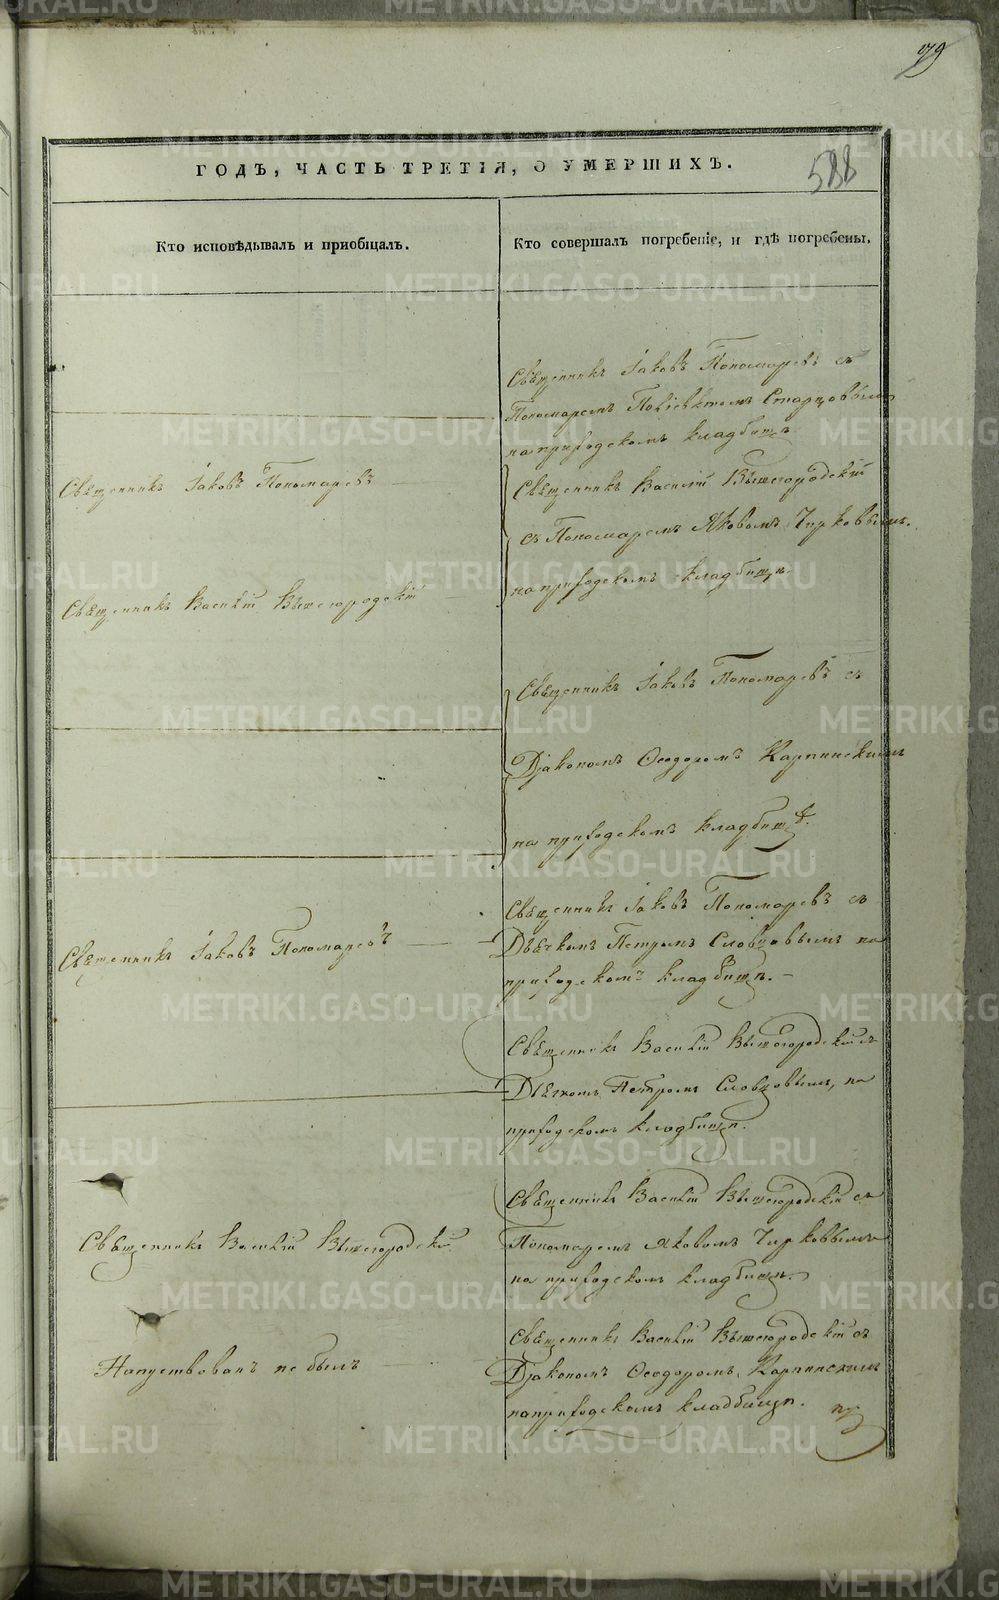 79
588
ГОДЪ, ЧАСТЬ ТРЕТІЯ, О УМЕРШИХЪ.
Кто исповѣдывалъ и пріобщалъ.
Кто совершалъ погребеніе, и гдѣ погребены.
Священникъ Іаковъ Пономаревъ съ
Пономаремъ Старцовымъ
на приходскомъ кладбищѣ
Священникъ Іаковъ Пономаревъ
Священникъ Василій Вышегородскій
съ Пономаремъ Яковомъ Чирковымъ.
на приходскомъ кладбищѣ.
Священникъ Василій Вышегородскій
Священникъ Іаковъ Пономаревъ съ
Діакономъ Ѳеодоромъ Карпинскимъ
на приходскомъ кладбищѣ.
Священникъ Іаковъ Пономаревъ
Священникъ Іаковъ Пономаревъ съ
Дьячкомъ Петромъ Словцовымъ на
приходскомъ кладбищѣ.
Священникъ Василій Вышегородскій съ
Дьячкомъ Петромъ Словцовымъ, на
приходскомъ кладбищѣ.
Священникъ Василій Вышегородскій
Священникъ Василій Вышегородскій съ
Пономаремъ Яковомъ Чирковымъ
на приходскомъ кладбищѣ.
Напутствованъ не былъ
Священникъ Василій Вышегородскій съ
Діакономъ Ѳеодоромъ Карпинскимъ
на приходскомъ кладбищѣ.
METRIKI.GASO-URAL.RU